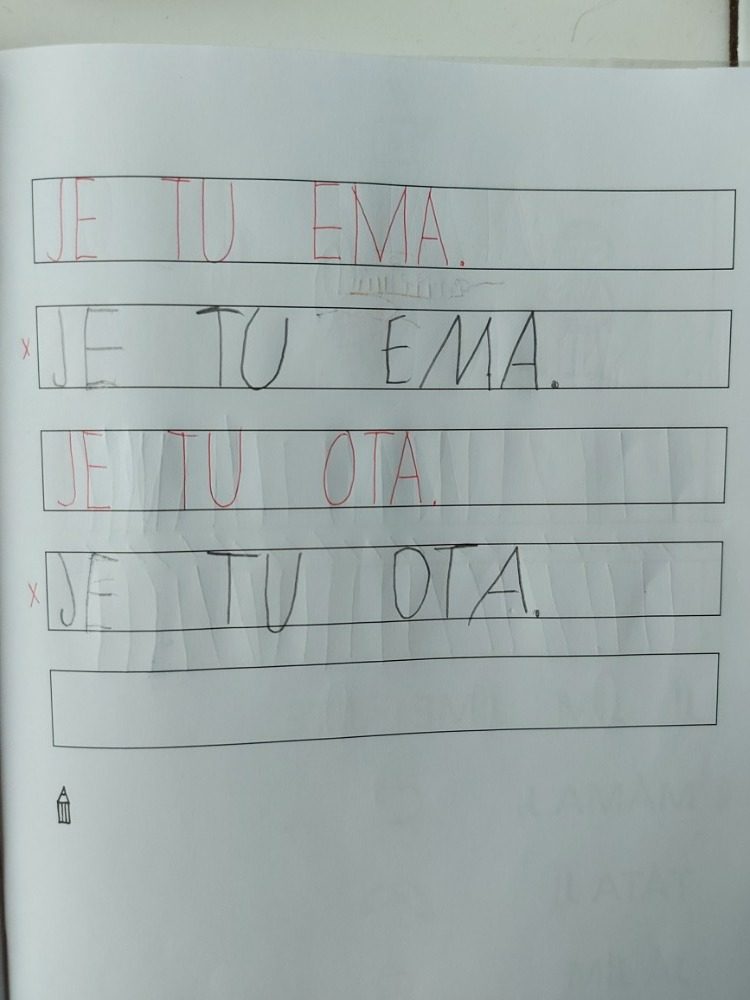 JE TU EMA.
x JE TU EMA.
JE TU OTA.
x JE TU OTA.